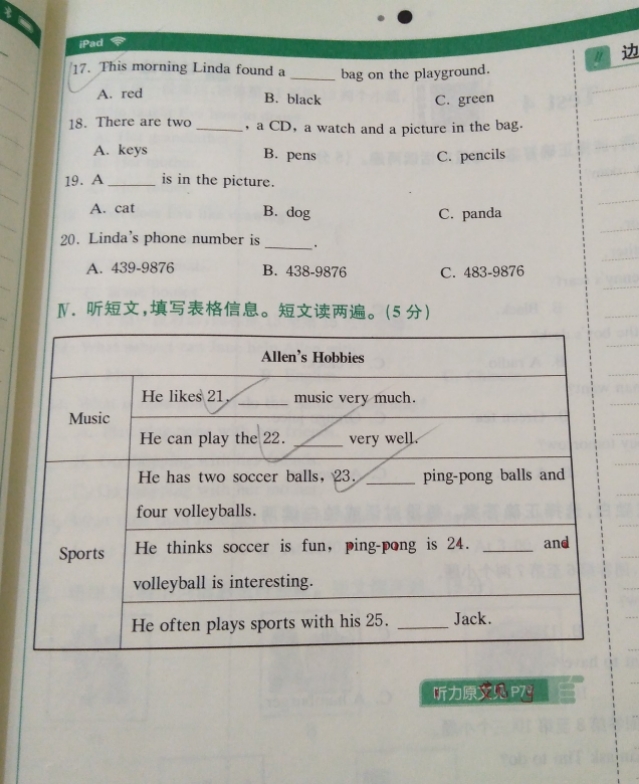 iPad
17. This morning Linda found a ______ bag on the playground.
A. red B. black C. green
18. There are two ______, a CD, a watch and a picture in the bag.
A. keys B. pens C. pencils
19. A ______ is in the picture.
A. cat B. dog C. panda
20. Linda's phone number is ______.
A. 439-9876 B. 438-9876 C. 483-9876
Ⅳ. 听短文,填写表格信息。短文读两遍。(5 分)
Allen's Hobbies
Music
He likes 21. ______ music very much.
He can play the 22. ______ very well.
Sports
He has two soccer balls, 23. ______ ping-pong balls and
four volleyballs.
He thinks soccer is fun, ping-pong is 24. ______ and
volleyball is interesting.
He often plays sports with his 25. ______ Jack.
听力原文见 P73
边